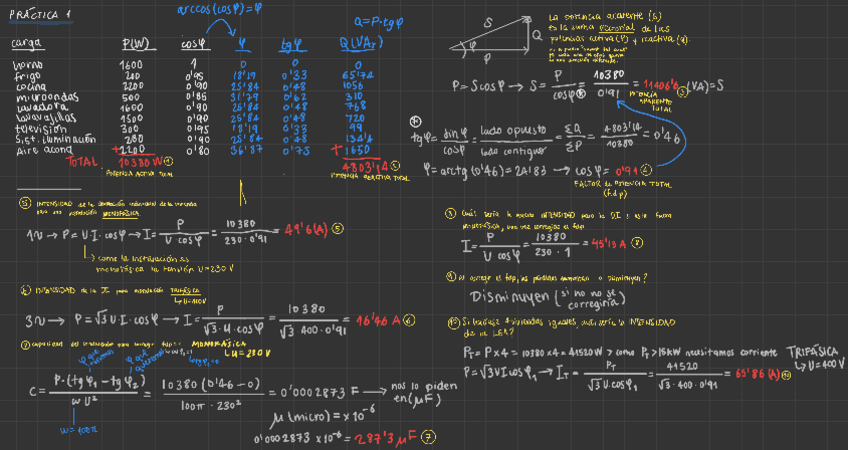 PRÁCTICA 1
arccos(cosφ)=φ
Q=P·tgφ
carga P(W) cosφ φ tgφ Q(VAr)
horno 1600 1 0 0 0
frigo 200 0'95 18'19 0'33 65'74
cocina 2200 0'90 25'84 0'48 1056
microondas 500 0'85 31'79 0'62 310
lavadora 1600 0'90 25'84 0'48 768
lavavajillas 1500 0'90 25'84 0'48 720
televisión 300 0'95 18'19 0'33 99
sist. iluminación 280 0'90 25'84 0'48 134'4
Aire acond +1200 0'80 36'87 0'75 +1650
TOTAL 10380 W
POTENCIA ACTIVA TOTAL
4803'14
POTENCIA REACTIVA TOTAL
S
Q
φ
P
La potencia aparente (S)
es la suma vectorial de las
potencias activa (P) y reactiva (Q).
P = S cosφ → S = P / cosφ = 10380 / 0'91 = 11406'6 (VA) = S
POTENCIA APARENTE TOTAL
tgφ = sinφ / cosφ = lado opuesto / lado contiguo = ΣQ / ΣP = 4803'14 / 10380 = 0'46
φ = arctg (0'46) = 24'83 → cosφ = 0'91
FACTOR DE POTENCIA TOTAL
(f.d.p)
⑤ INTENSIDAD de la
para una instalación MONOFÁSICA
1∿ → P = U·I·cosφ → I = P / U cosφ = 10380 / 230·0'91 = 49'6 (A) ⑤
como la instalación es
monofásica la tensión U=230 V
⑥ INTENSIDAD de la para instalación TRIFÁSICA
U=400V
3∿ → P = √3 U·I·cosφ → I = P / √3·U·cosφ = 10380 / √3·400·0'91 = 16'46 A ⑥
⑦ capacidad del condensador para corregir fdp= MONOFÁSICA
U=230V
C = P·(tgφ1 - tgφ2) / w U² = 10380 (0'46 - 0) / 100π·230² = 0'0002873 F → nos lo piden
en (μF)
w=100π
μ (micro) = x10⁻⁶
0'0002873 x10⁻⁶ = 287'3 μF ⑦
⑧ Cuál sería la nueva INTENSIDAD para la si esta fuera
monofásica, una vez corregido el fdp
I = P / U cosφ = 10380 / 230·1 = 45'13 A ⑧
⑨ Al corregir el fdp, las pérdidas aumentan o disminuyen?
Disminuyen (si no no se
corregiría)
⑩ Si hubiese 4 viviendas iguales, cuál sería la INTENSIDAD
de la LGA?
PT = P x 4 = 10380 x 4 = 41520 W > como PT > 15kW necesitamos corriente TRIFÁSICA
U=400V
P = √3 U I cosφ1 → IT = PT / √3 U·cosφ1 = 41520 / √3·400·0'91 = 65'86 (A) ⑩